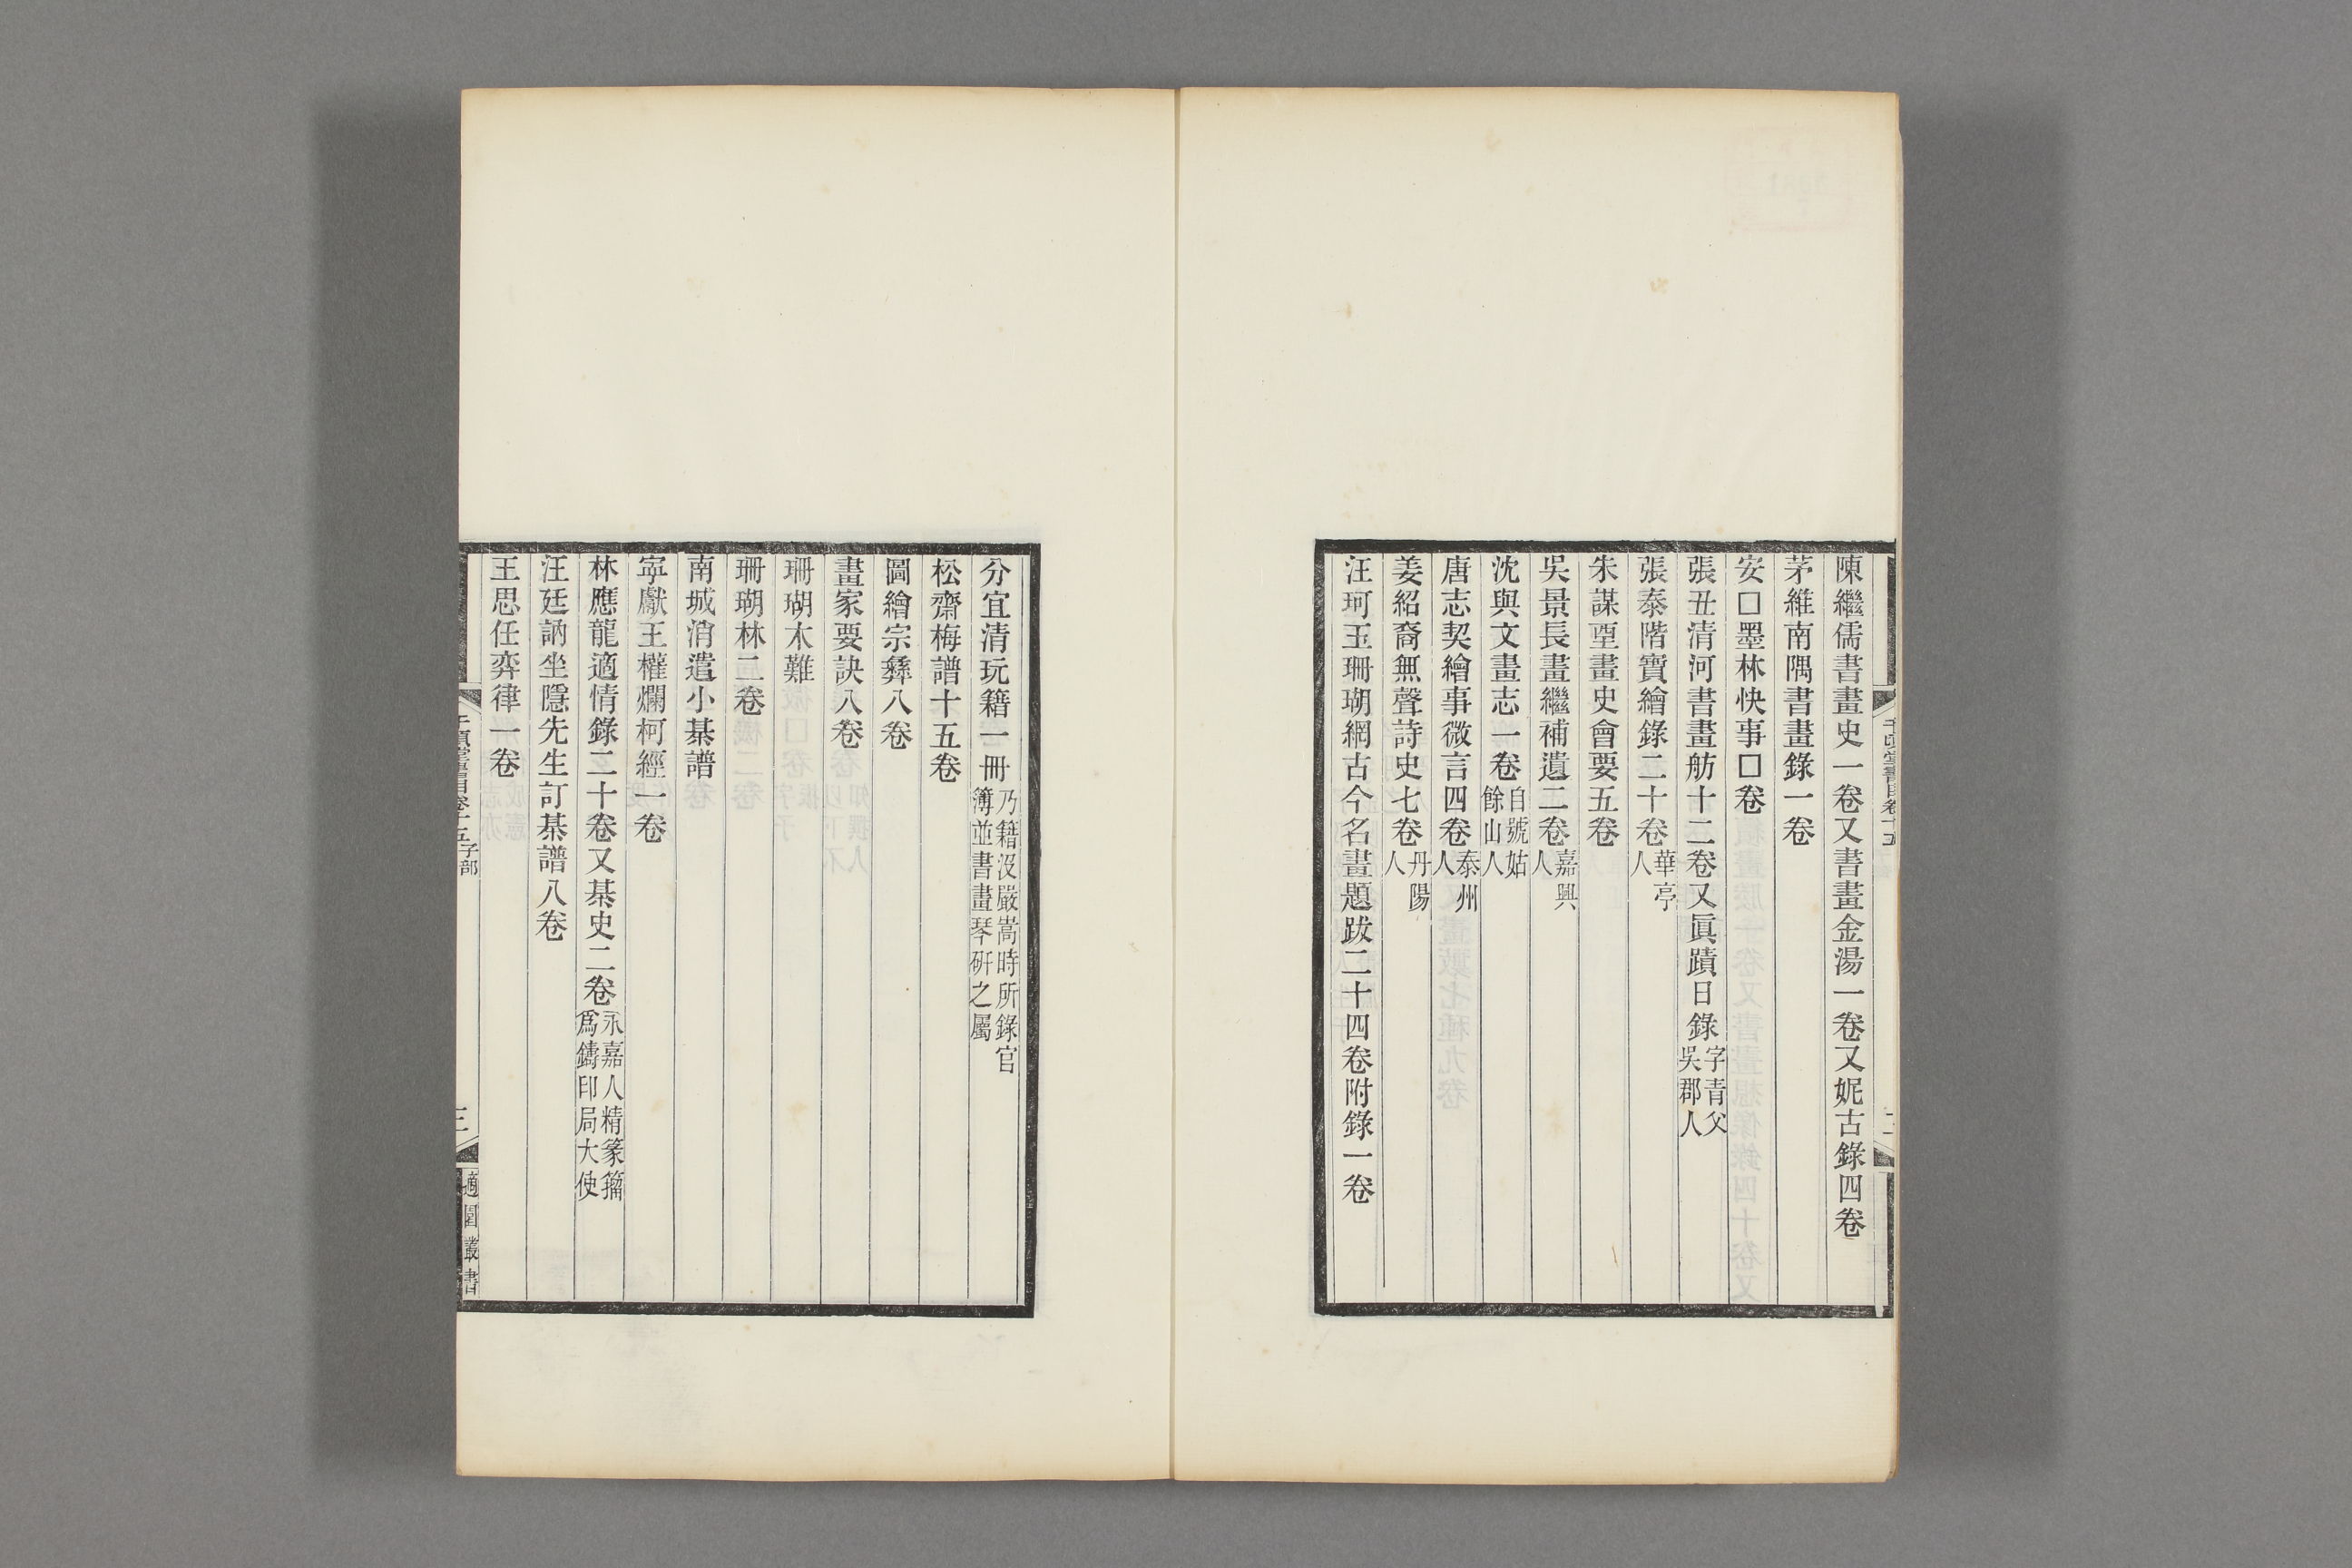 陳繼儒書畫史一卷又書畫金湯一卷又妮古錄四卷
茅維南隅書畫錄一卷
安□墨林快事□卷
張丑清河書畫舫十二卷又眞蹟日錄字青父吳郡人
張泰階寶繪錄二十卷華亭人
朱謀垔畫史會要五卷
吳景長畫繼補遺二卷嘉興人
沈與文畫志一卷自號姑餘山人
唐志契繪事微言四卷泰州人
姜紹裔無聲詩史七卷丹陽人
汪珂玉珊瑚網古今名畫題跋二十四卷附錄一卷
分宜清玩籍一冊乃籍沒嚴嵩時所錄官簿並書畫琴研之屬
松齋梅譜十五卷
圖繪宗彝八卷
畫家要訣八卷
珊瑚木難
珊瑚林二卷
南城消遣小棊譜
寧獻王權爛柯經一卷
林應龍適情錄二十卷又棊史二卷永嘉人精篆籀爲鑄印局大使
汪廷訥坐隱先生訂棊譜八卷
王思任弈律一卷
千頃堂書目卷十五子部
三
適園叢書